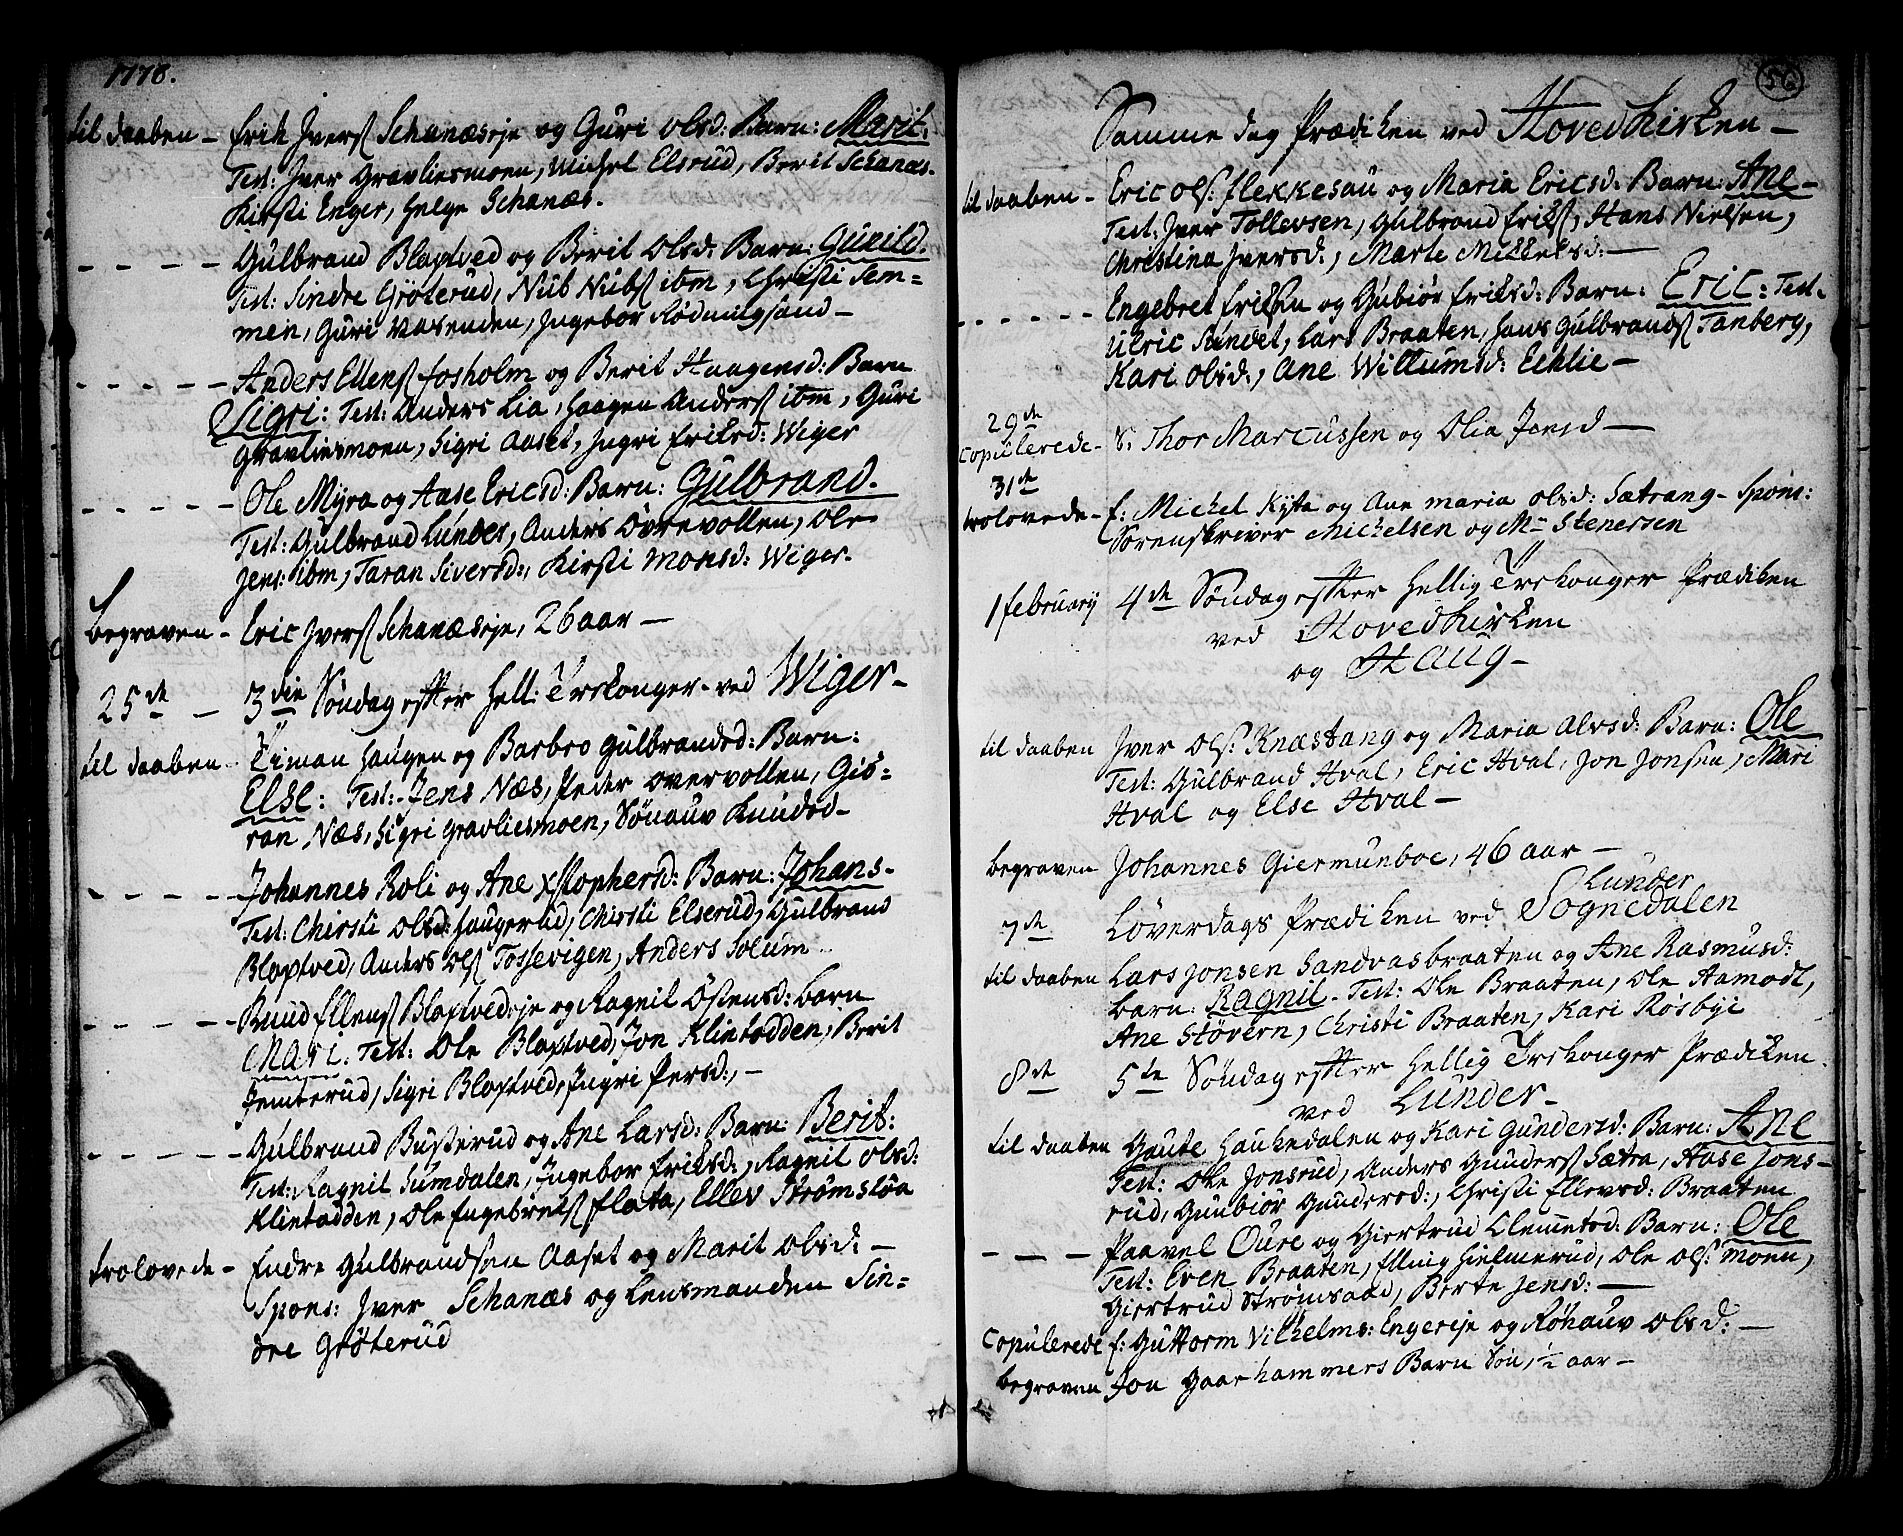 1778.
til daaben - Erik Jvers Schanæseje og Guri Olsd: Barn: Marit.
Test: Jver Gravliesmoen, Michel Elsrud, Berit Schanæs.
Kirsti Enger, Helge Schanæs.
- - - - - Gulbrand Bloptved og Berit Olsd: Barn: Gunild.
Test: Sindre Grøterud, Nub Nubs ibm, Christi Sem=
men, Guri Vasenden, Jngebor Rødningsand -
- - - - - Anders Ellens fosholm og Berit Haagensd: Barn
Sigri: Test: Anders Lia, Haagen Anders ibm, Guri
Gravliesmoen, Sigri Aaset, Jngri Eriksd: Wiger
- - - - - Ole Myra og Aase Ericsd: Barn: Gulbrand.
Test: Gulbrand Lundes, Anders Övrevollen, Ole
Jens: ibm, Taran Siversd:, Kirsti Monsd: Wiger.
begraven - Eric Jvers Schanæseje, 26 aar -
25de - 3die Søndag efter Hell: Trekonger - ved Wiger -
til daaben - Timan Haugen og Barbro Gulbrandsd: Barn:
Else: Test: Jens Næs, Peder overvollen, Giö=
ran Næs, Sigri Gravliesmoen, Sönauv Knudsd -
- - - - - Johannes Roli og Ane Xstophersd: Barn: Johans -
Test: Chirsti Olsd: Haugerud, Christi Elserud, Gulbrand
Bloptved, Anders Ols Tossevigen, Anders Solum -
- - - - - Knud Ellens Bloptvedeje og Ragnil Östensd: barn
Mari: Test: Ole Bloptved, Jon Klintodden, Berit
Jemterud, Sigri Bloptved, Jngri Persd:, -
- - - - - Gulbrand Busterud og Ane Larsd: Barn: Berit:
Test: Ragnil Sumdalen, Jngebor Friksd:, Ragnil Olsd:
Klintodden, Ole Engebrets flata, Ellev Strömstöa
trolovede - Endre Gulbrandsen Aaset og Marit Olsd: -
Spons: Jver Schanæs og Lensmanden Sin=
dre Grøterud
56
Samme dag Prædiken ved Hovedkirken -
til daaben - Eric Ols: flekkesau og Maria Ericsd: Barn: Ane -
Test: Jver Tollevsen, Gulbrand Eriks, Hans Nielsen,
Christina Jversd:, Marte Mikkelsd: -
- - - - - - Engebret Eriksen og Gubiör Eriksd: Barn: Eric: Test.
Ulric Rundet, Lars Braaten, Hans Gulbrands Tanberg,
Kari Olsd:, Ane Willumsd: Echlie -
29de
copulerede - S. Thor Marcussen og Olia Jensd -
31de
trolovede - f: Michel Kyste og Ane maria Olsd: Sætrang - Spons:
Sorenskriver Michelsen og Mr Stenersen
1 february 4de Søndag efter Hellig Trekonger Prædiken
ved Hovedkirken
og Haug -
til daaben Jver Ols: Knæstang og Maria Alvsd: Barn: Ole
Test: Gulbrand Hval, Eric Hval, Jon Jonsen, Mari
Hval og Else Hval -
begraven Johannes Giermunboe, 46 aar -
Lunder
7de Løverdags Prædiken ved Sognedalen
til daaben Lars Jonsen Sandvasbraaten og Ane Rasmusd:
barn: Ragnil - Test: Ole Braaten, Ole Aamodt,
Ane Støvern, Christi Braaten, Kari Rosbye
8de 5te Søndag efter Hellig Trekonger Prædiken
ved Lunder -
til daaben Gaute Haukedalen og Kari Gundersd: Barn: Ane
Test: Ole Jonsrud, Anders Gunders Sætra, Aase Jons-
rud, Gunbiör Gundersd:, Christi Ellevsd: Braaten
- - - Paavel Oure og Giertrud Clemetsd: Barn: Ole
Test: Even Braaten, Elling Hielmerud, Ole Ols: moen,
Giertrud Strömsaad, Berte Jensd: -
Copulerede f: Guttorm Vilhelms: Engereje og Rönauv Olsd: -
begraven Jon Gaarhammers Barn Søn, 1/2 aar -